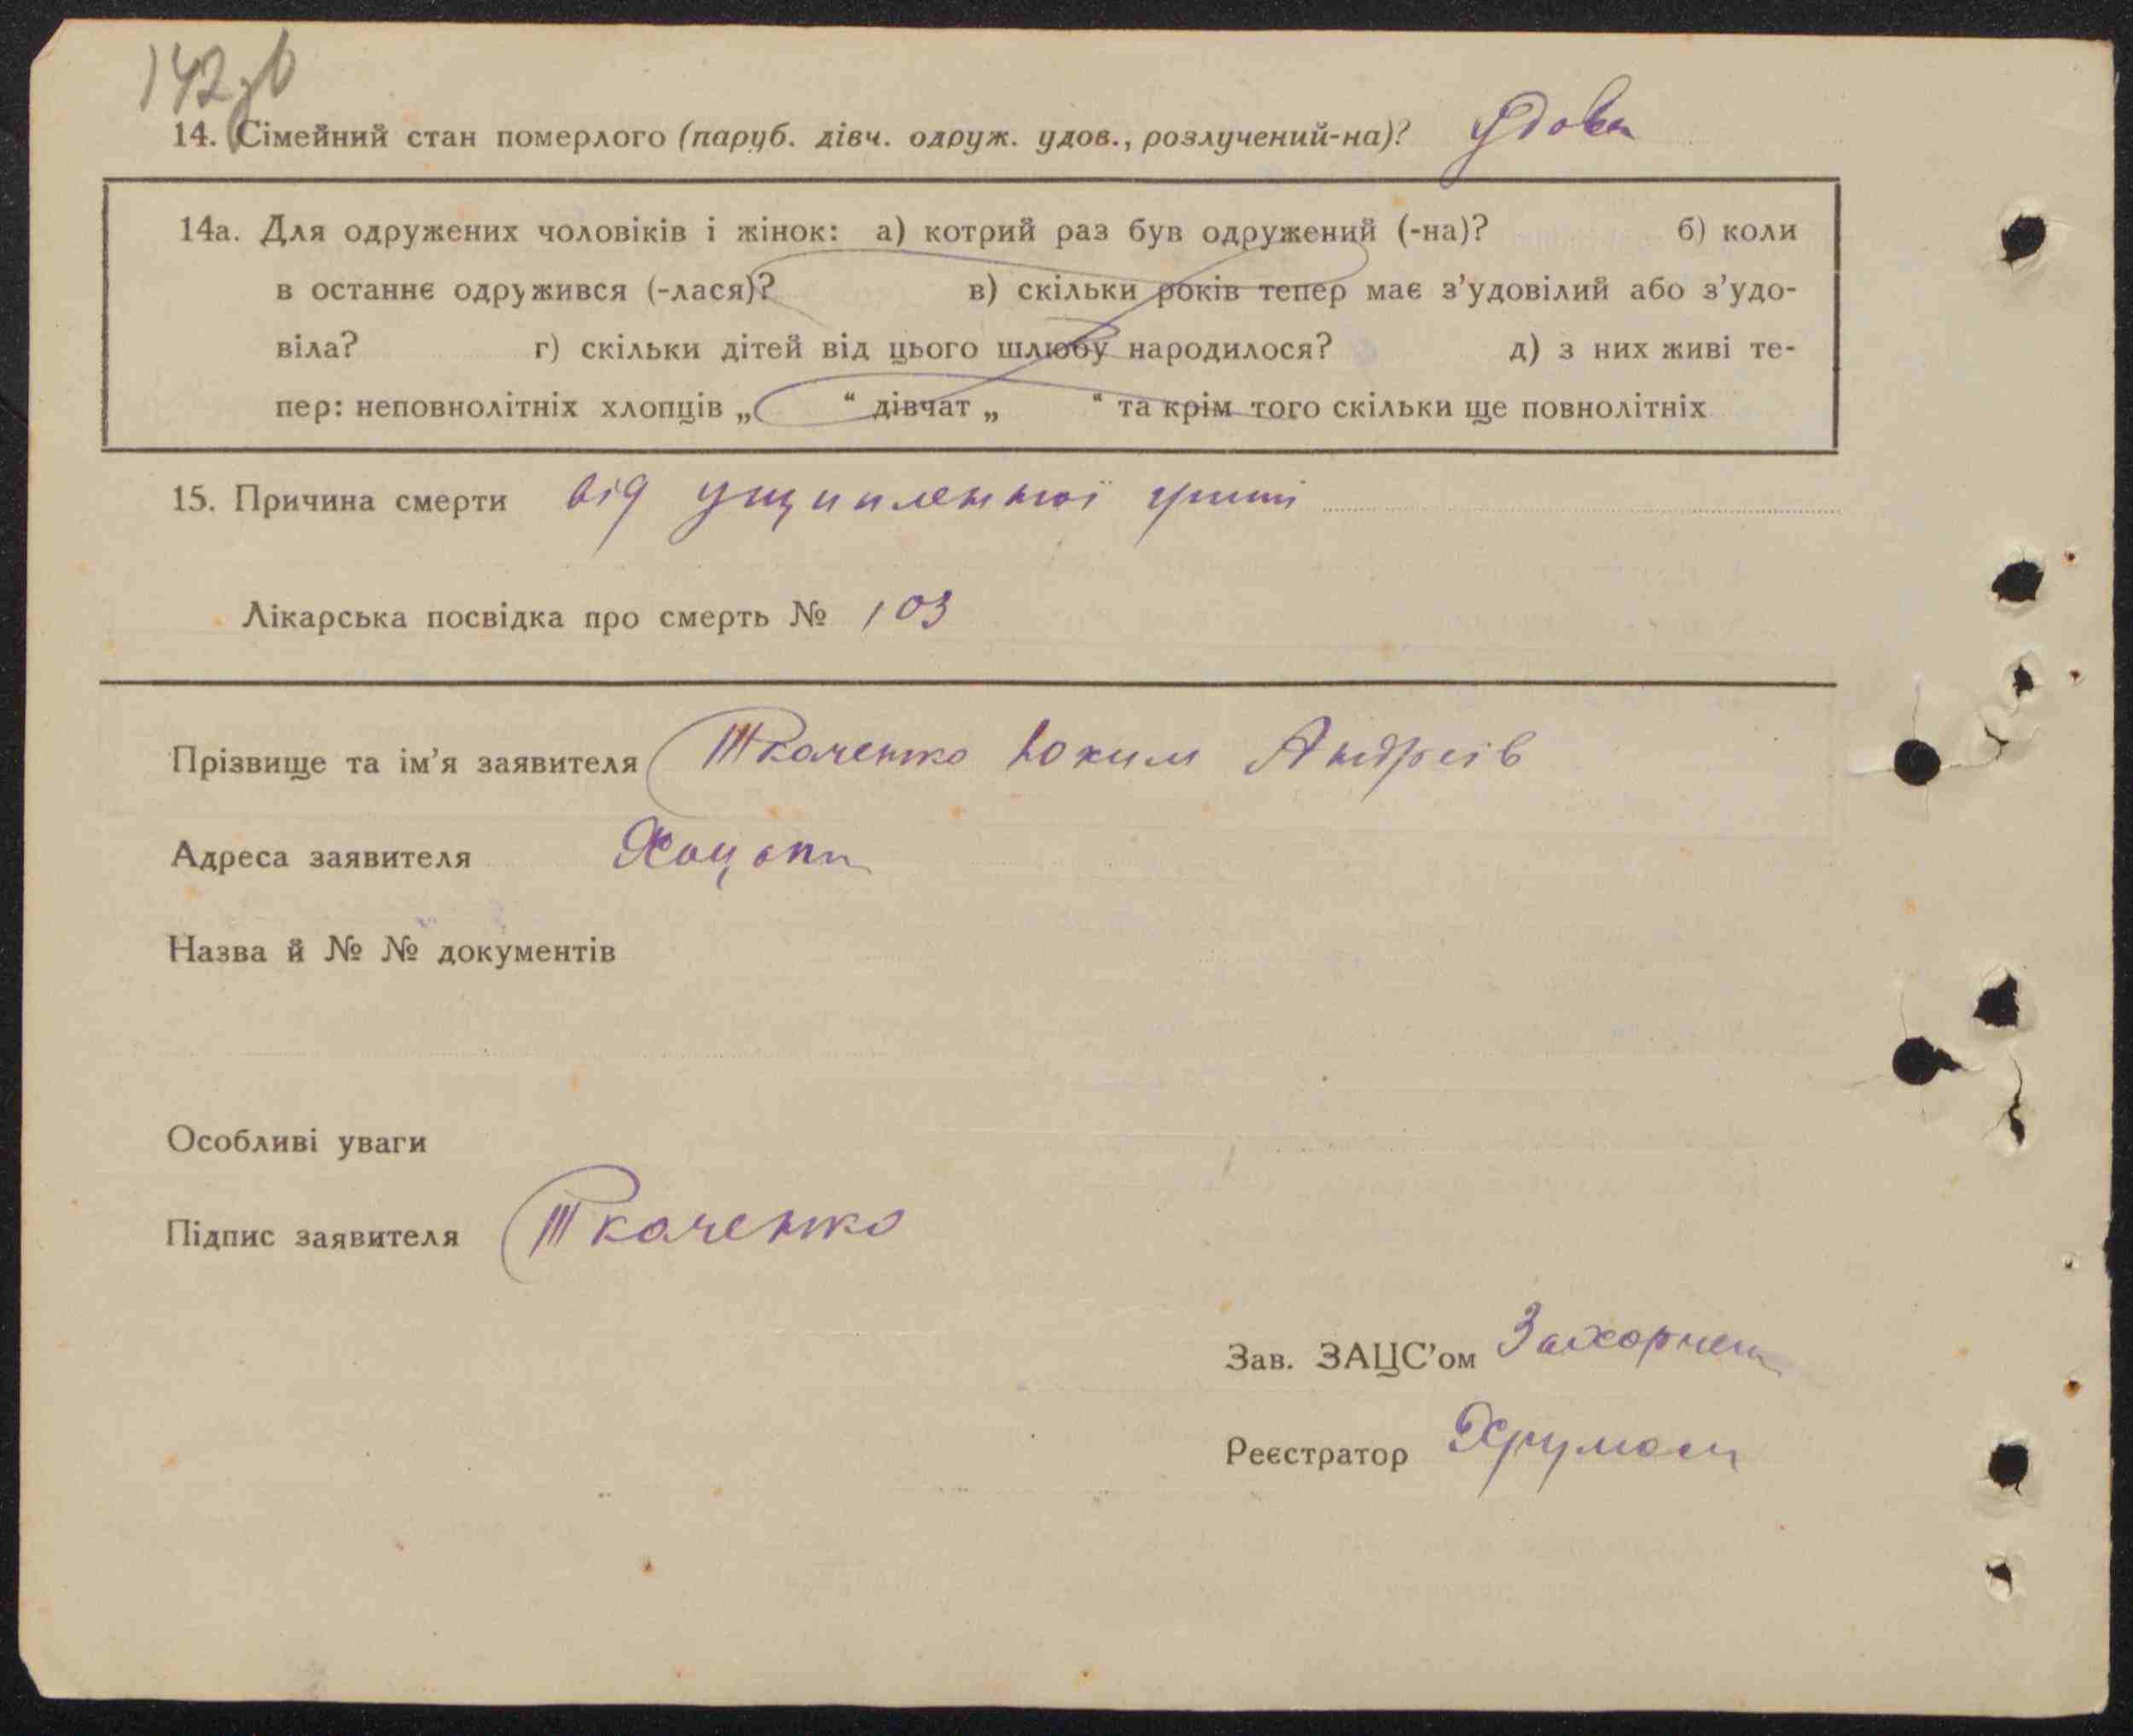 142зв
14. Сімейний стан померлого (паруб. дівч. одруж. удов., розлучений-на)? Удова
14а. Для одружених чоловіків і жінок: а) котрий раз був одружений (-на)? б) коли
в останнє одружився (-лася)? в) скільки років тепер має з’удовілий або з’удо-
віла? г) скільки дітей від цього шлюбу народилося? д) з них живі те-
пер: неповнолітніх хлопців „ “ дівчат „ “ та крім того скільки ще повнолітніх
15. Причина смерти від ущипленної грижі
Лікарська посвідка про смерть № 103
Прізвище та ім’я заявителя Ткаченко Юхим Андріїв
Адреса заявителя Хоцьки
Назва й № № документів
Особливі уваги
Підпис заявителя Ткаченко
Зав. ЗАЦС’ом
Реєстратор